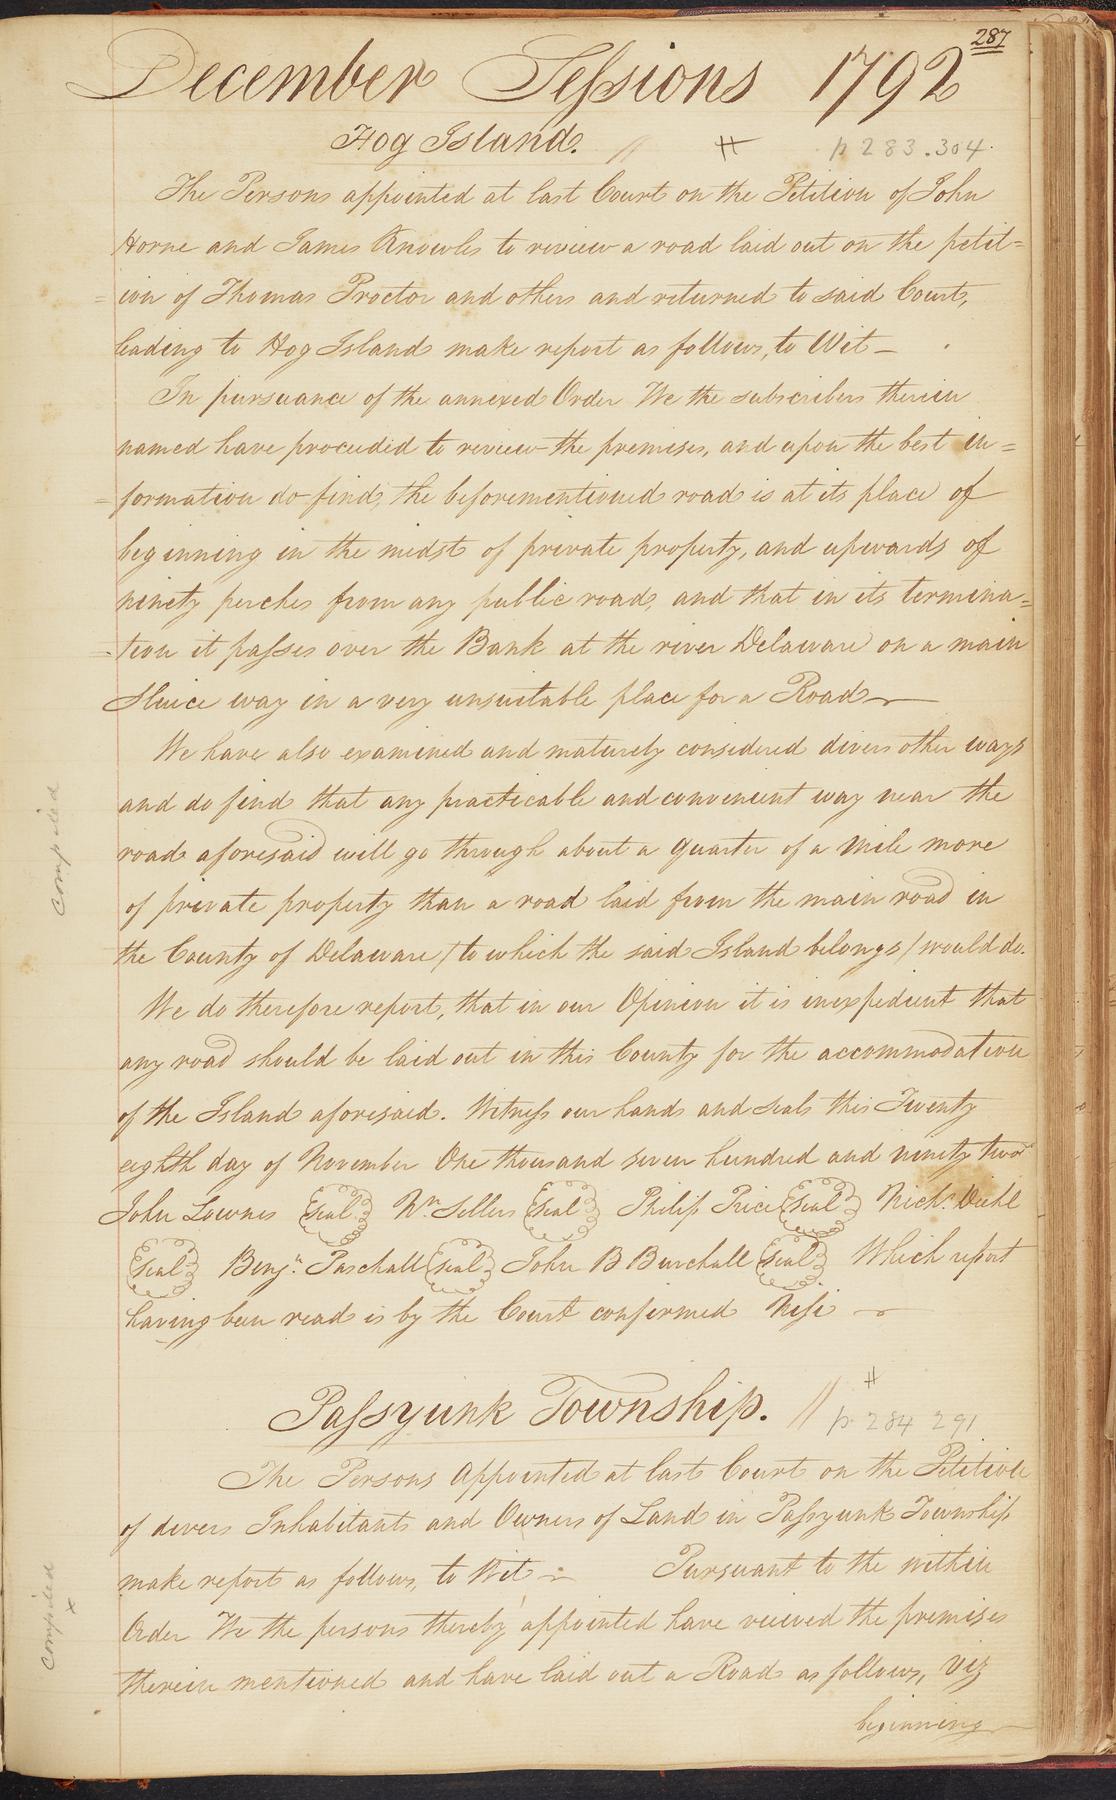 287
December Sessions 1792
Hog Island. // # p 283.304.
The Persons appointed at last Court on the Petition of John
Horne and James Knowles to review a road laid out on the petit=
=ion of Thomas Proctor and others and returned to said Court,
leading to Hog Island make report as follows, to Wit –
In pursuance of the annexed Order We the subscribers therein
named have proceeded to review the premises, and upon the best in=
=formation do find, the beforementioned road is at its place of
beginning in the midst of private property, and upwards of
ninety perches from any public road, and that in its termina=
=tion it passes over the Bank at the river Delaware on a main
Sluice way in a very unsuitable place for a Road –
We have also examined and maturely considered divers other ways
and do find that any practicable and convenient way near the
road aforesaid will go through about a quarter of a Mile more
of private property than a road laid from the main road in
the County of Delaware / to which the said Island belongs / would do.
We do therefore report, that in our Opinion it is inexpedient that
any road should be laid out in this County for the accommodation
of the Island aforesaid. Witness our hands and seals this Twenty
eighth day of November One thousand seven hundred and ninety two
John Lownes seal Wm. Sellers seal Philip Price seal Nichs. Diehl
seal Benjn. Paschall seal John B Burchall seal Which report
having been read is by the Court confirmed Nisi –
Passyunk Township. // # p 284 291
The Persons Appointed at last Court on the Petition
of divers Inhabitants and Owners of Land in Passyunk Township
make report as follows, to Wit – Pursuant to the within
Order We the persons thereby appointed have veiwed the premises
therein mentioned and have laid out a Road as follows, Viz
beginning
compiled
compiled
x